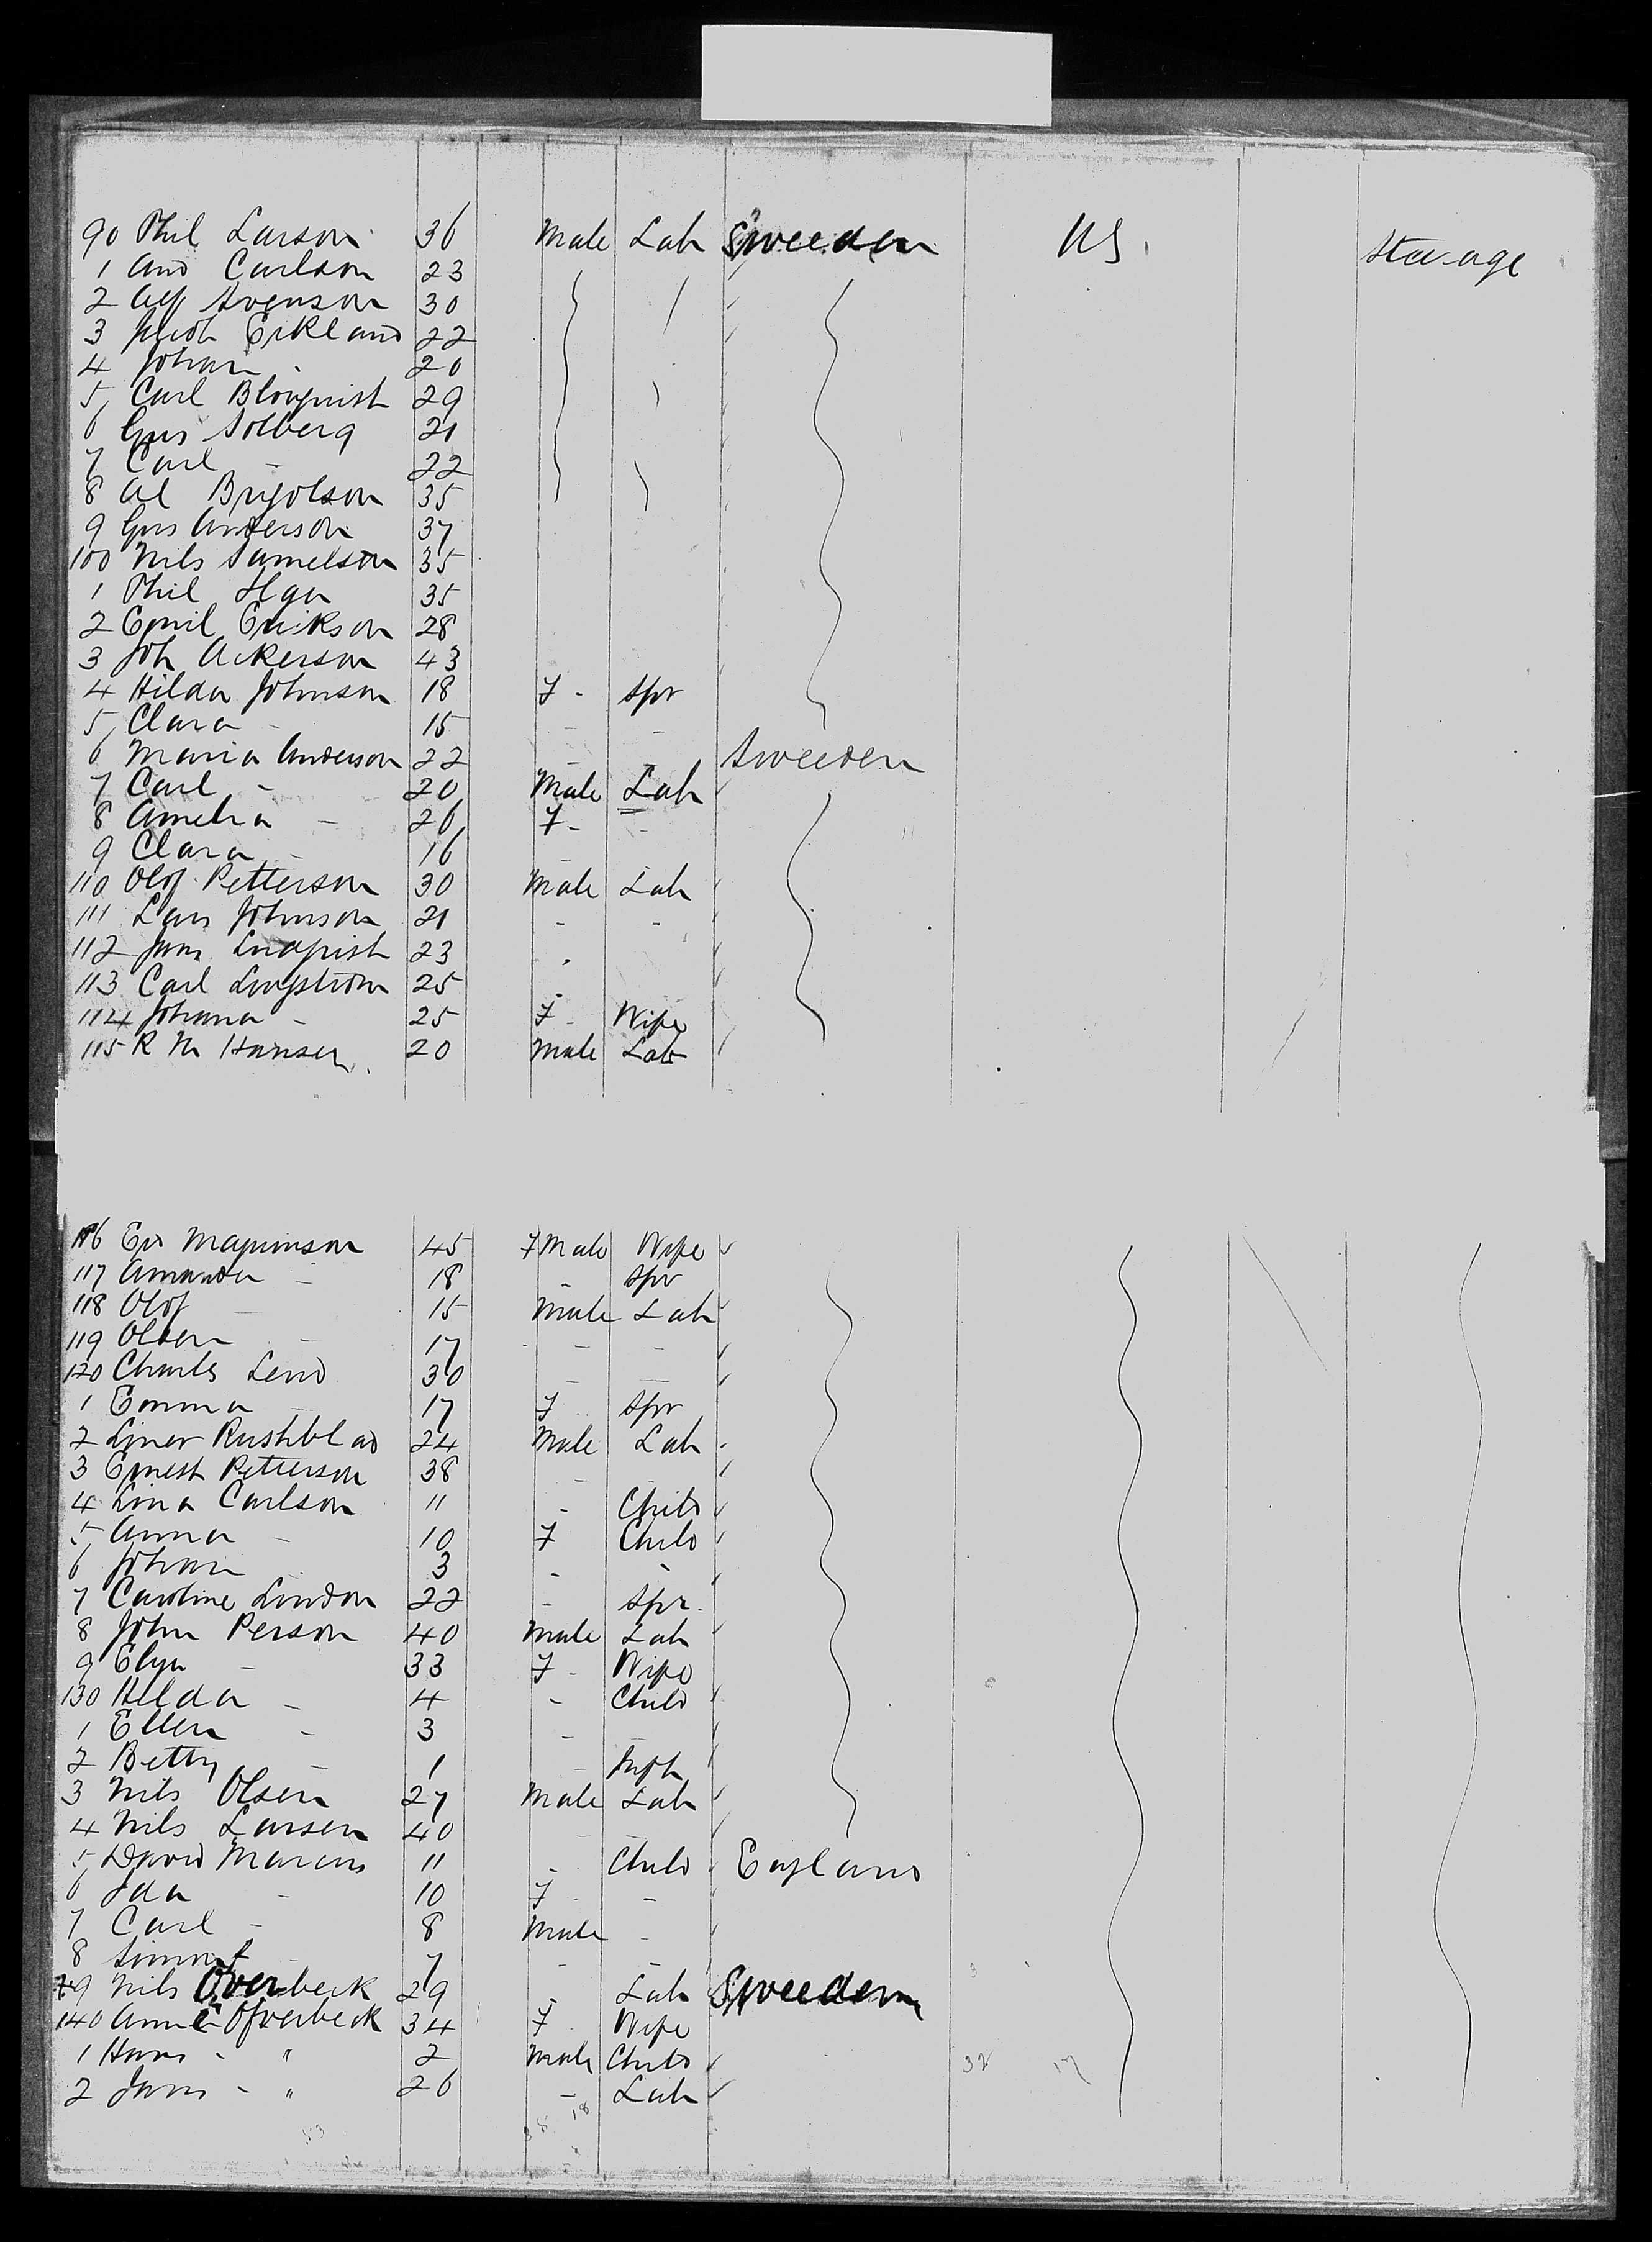 90 Phil Larson 36 Male Lab Sweeden US. Steerage
1 And Carlson 23
2 Alf Svenson 30
3 Jacob Erkland 22
4 Johan - 20
5 Carl Blomquist 29
6 Gus Solberg 21
7 Carl - 22
8 Al 35
9 Gus Anderson 37
100 Nils Samelson 35
1 Phil 35
2 Emil Erikson 28
3 Joh Ackerson 43
4 Hilda Johnson 18 F - Spr
5 Clara - 15 - -
6 Maria Anderson 22 - Sweeden
7 Carl - 20 Male Lab
8 Amelia - 26 F - -
9 Clara - 16 -
110 Olof Petterson 30 Male Lab
111 Lars Johnson 21 - -
112 Jans 23 -
113 Carl 25 -
114 Johana - 25 F - Wife
115 R M Hansen. 20 Male Lab
116 Eva 45 F Male Wife
117 Amanda - 18 - Spr
118 Olof - 15 Male Lab
119 - 17 - -
120 Charles Lend 30 - -
1 Emma - 17 F Spr
2 24 Male Lab
3 Ernest Petterson 38 - -
4 Lina Carlson 11 - Child
5 Anna - 10 F Child
6 Johan - 3 - -
7 Caroline London 22 - Spr.
8 John Person 40 Male Lab
9 - 33 F - Wife
130 Hilda - 4 - Child
1 Ellen - 3 -
2 Betty - 1 - Inft
3 Nils Olsen 27 Male Lab
4 Nils Larsen 40
5 David Marcus 11 - Child England
6 Ida - 10 F - -
7 Carl - 8 Male -
8 - 7 - -
9 Nils Overbeck 29 - Lab Sweeden
140 Anne Ofverbeck 34 F Wife
1 Hans - " 2 Male Child
2 Jans - " 26 - Lab